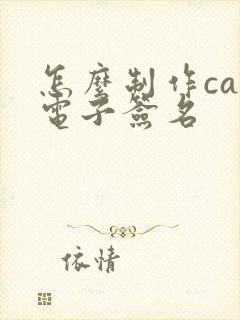 怎麼制作ca
電子簽名
依情